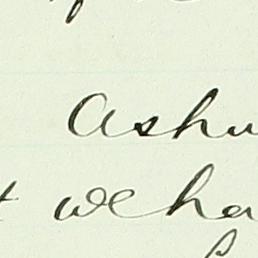 Ashu
t we ha